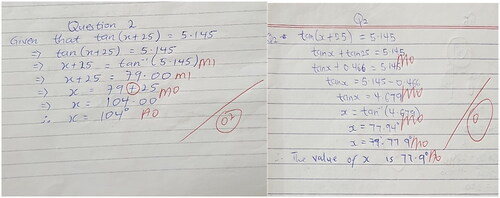 Question 2
Given that tan(x+25) = 5.145
⇒ tan(x+25) = 5.145
⇒ x+25 = tan⁻¹(5.145) M1
⇒ x+25 = 79.00 M1
⇒ x = 79+25 M0
⇒ x = 104.00
∴ x = 104° A0
02
Q2
tan(x+25) = 5.145
tanx + tan25 = 5.145
tanx + 0.466 = 5.145 M0
tanx = 5.145 - 0.46
tanx = 4.679 M0
x = tan⁻¹(4.679)
x = 77.94° M0
x = 77.9°
The value of x is 77.9° A0
0